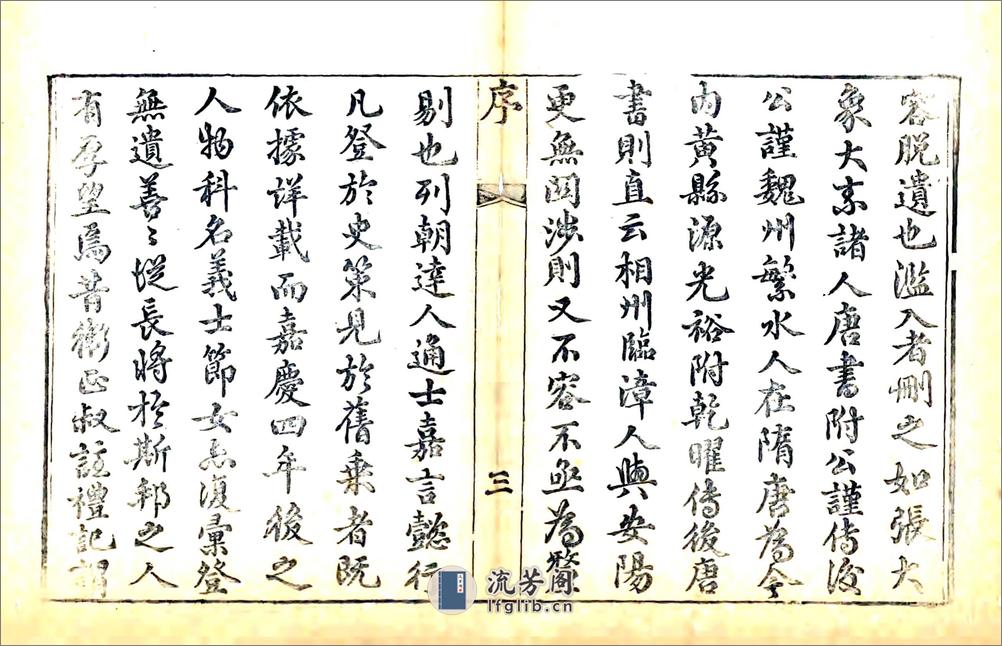 容脫遺也濫入者刪之如張大
象大素諸人唐書附公謹傳後
公謹魏州繁水人在隋唐為今
內黃縣源光裕附乾曜傳後唐
書則直云相州臨漳人與安陽
更無關涉則又不容不亟為釐
序
三
剔也列朝達人通士嘉言懿行
凡登於史策見於舊乘者既
依據詳載而嘉慶四年後之
人物科名義士節女亦復彙登
無遺善善從長將於斯邦之人
有厚望焉昔衛正叔註禮記謂
流芳阁
lfglib.cn